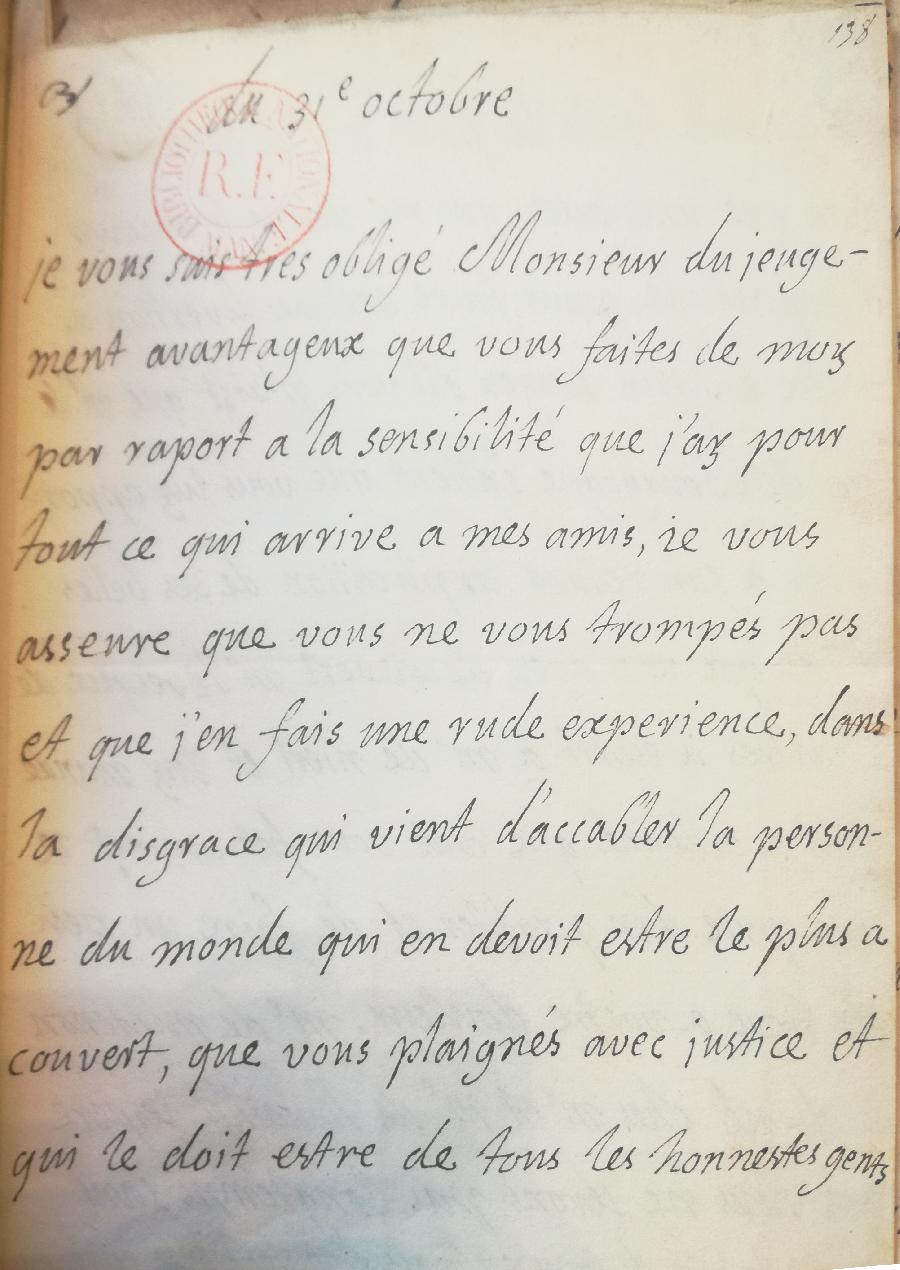 138
du 31e octobre
BIBLIOTHEQUE NATIONALE
R.F.
je vous suis tres obligé Monsieur du jeuge-
ment avantageux que vous faites de moy
par raport a la sensibilité que j'ay pour
tout ce qui arrive a mes amis, ie vous
asseure que vous ne vous trompés pas
et que j'en fais une rude experience, dans
la disgrace qui vient d'accabler la person-
ne du monde qui en devoit estre le plus a
couvert, que vous plaignés avec justice et
qui le doit estre de tous les honnestes gents